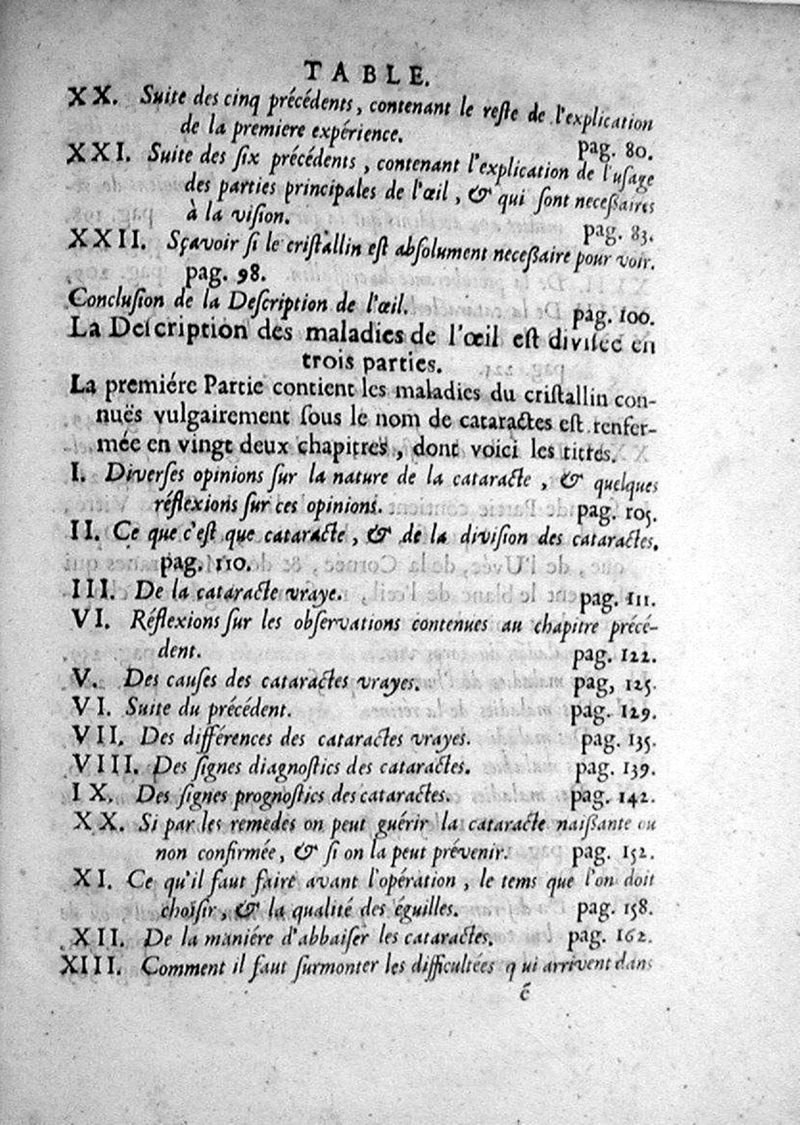 TABLE.
XX. Suite des cinq précédents, contenant le reste de l'explication
de la premiere expérience. pag. 80.
XXI. Suite des six précédents, contenant l'explication de l'usage
des parties principales de l'œil, & qui sont necessaires
à la vision. pag. 83.
XXII. Sçavoir si le cristallin est absolument necessaire pour voir.
pag. 98.
Conclusion de la Description de l'œil. pag. 100.
La Description des maladies de l'œil est divisée en
trois parties.
La premiére Partie contient les maladies du cristallin con-
nuës vulgairement sous le nom de cataractes est renfer-
mée en vingt deux chapitres, dont voici les titres.
I. Diverses opinions sur la nature de la cataracte, & quelques
réflexions sur ces opinions. pag. 105.
II. Ce que c'est que cataracte, & de la division des cataractes.
pag. 110.
III. De la cataracte vraye. pag. 111.
VI. Réflexions sur les observations contenues au chapitre précé-
dent. pag. 122.
V. Des causes des cataractes vrayes. pag, 125.
VI. Suite du précédent. pag. 129.
VII. Des différences des cataractes vrayes. pag. 135.
VIII. Des signes diagnostics des cataractes. pag. 139.
IX. Des signes prognostics des cataractes. pag. 142.
XX. Si par les remedes on peut guérir la cataracte naissante ou
non confirmée, & si on la peut prévenir. pag. 152.
XI. Ce qu'il faut faire avant l'opération, le tems que l'on doit
choisir, & la qualité des éguilles. pag. 158.
XII. De la maniére d'abbaiser les cataractes. pag. 162.
XIII. Comment il faut surmonter les difficultées qui arrivent dans